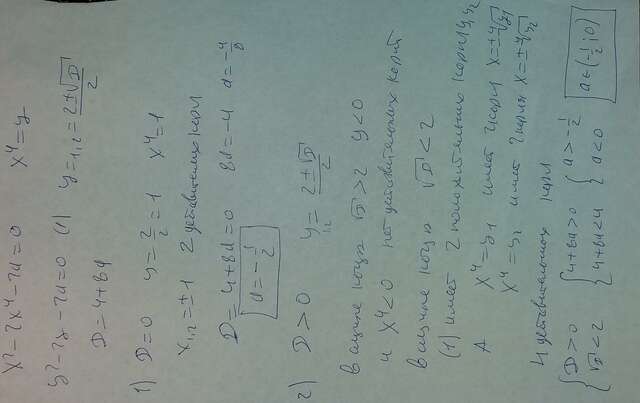 x⁸-2x⁴-7a=0 x⁴=y
y²-2y-7a=0 (1) y₁,₂=(2±√D)/2
D=4+8a
1) D=0 y=2/2=1 x⁴=1
x₁,₂=±1 2 действительных корня
D=4+8a=0 8a=-4 a=-4/8
a=-1/2
2) D>0 y₁,₂=(2±√D)/2
в случае когда √D>2 y<0
и x⁴<0 нет действительных корней
в случае когда √D<2
(1) имеет 2 положительных корня y₁,y₂
А x⁴=y₁ имеет 2 корня x=±⁴√y₁
x⁴=y₂ имеет 2 корня x=±⁴√y₂
4 действительных корня
{D>0 {4+8a>0 {a>-1/2
{√D<2 {4+8a<4 {a<0 a∈(-1/2;0)